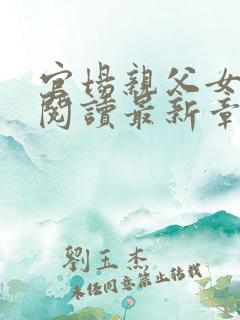 官場親父女
閱讀最新章
劉玉杰
未经同意禁止转载